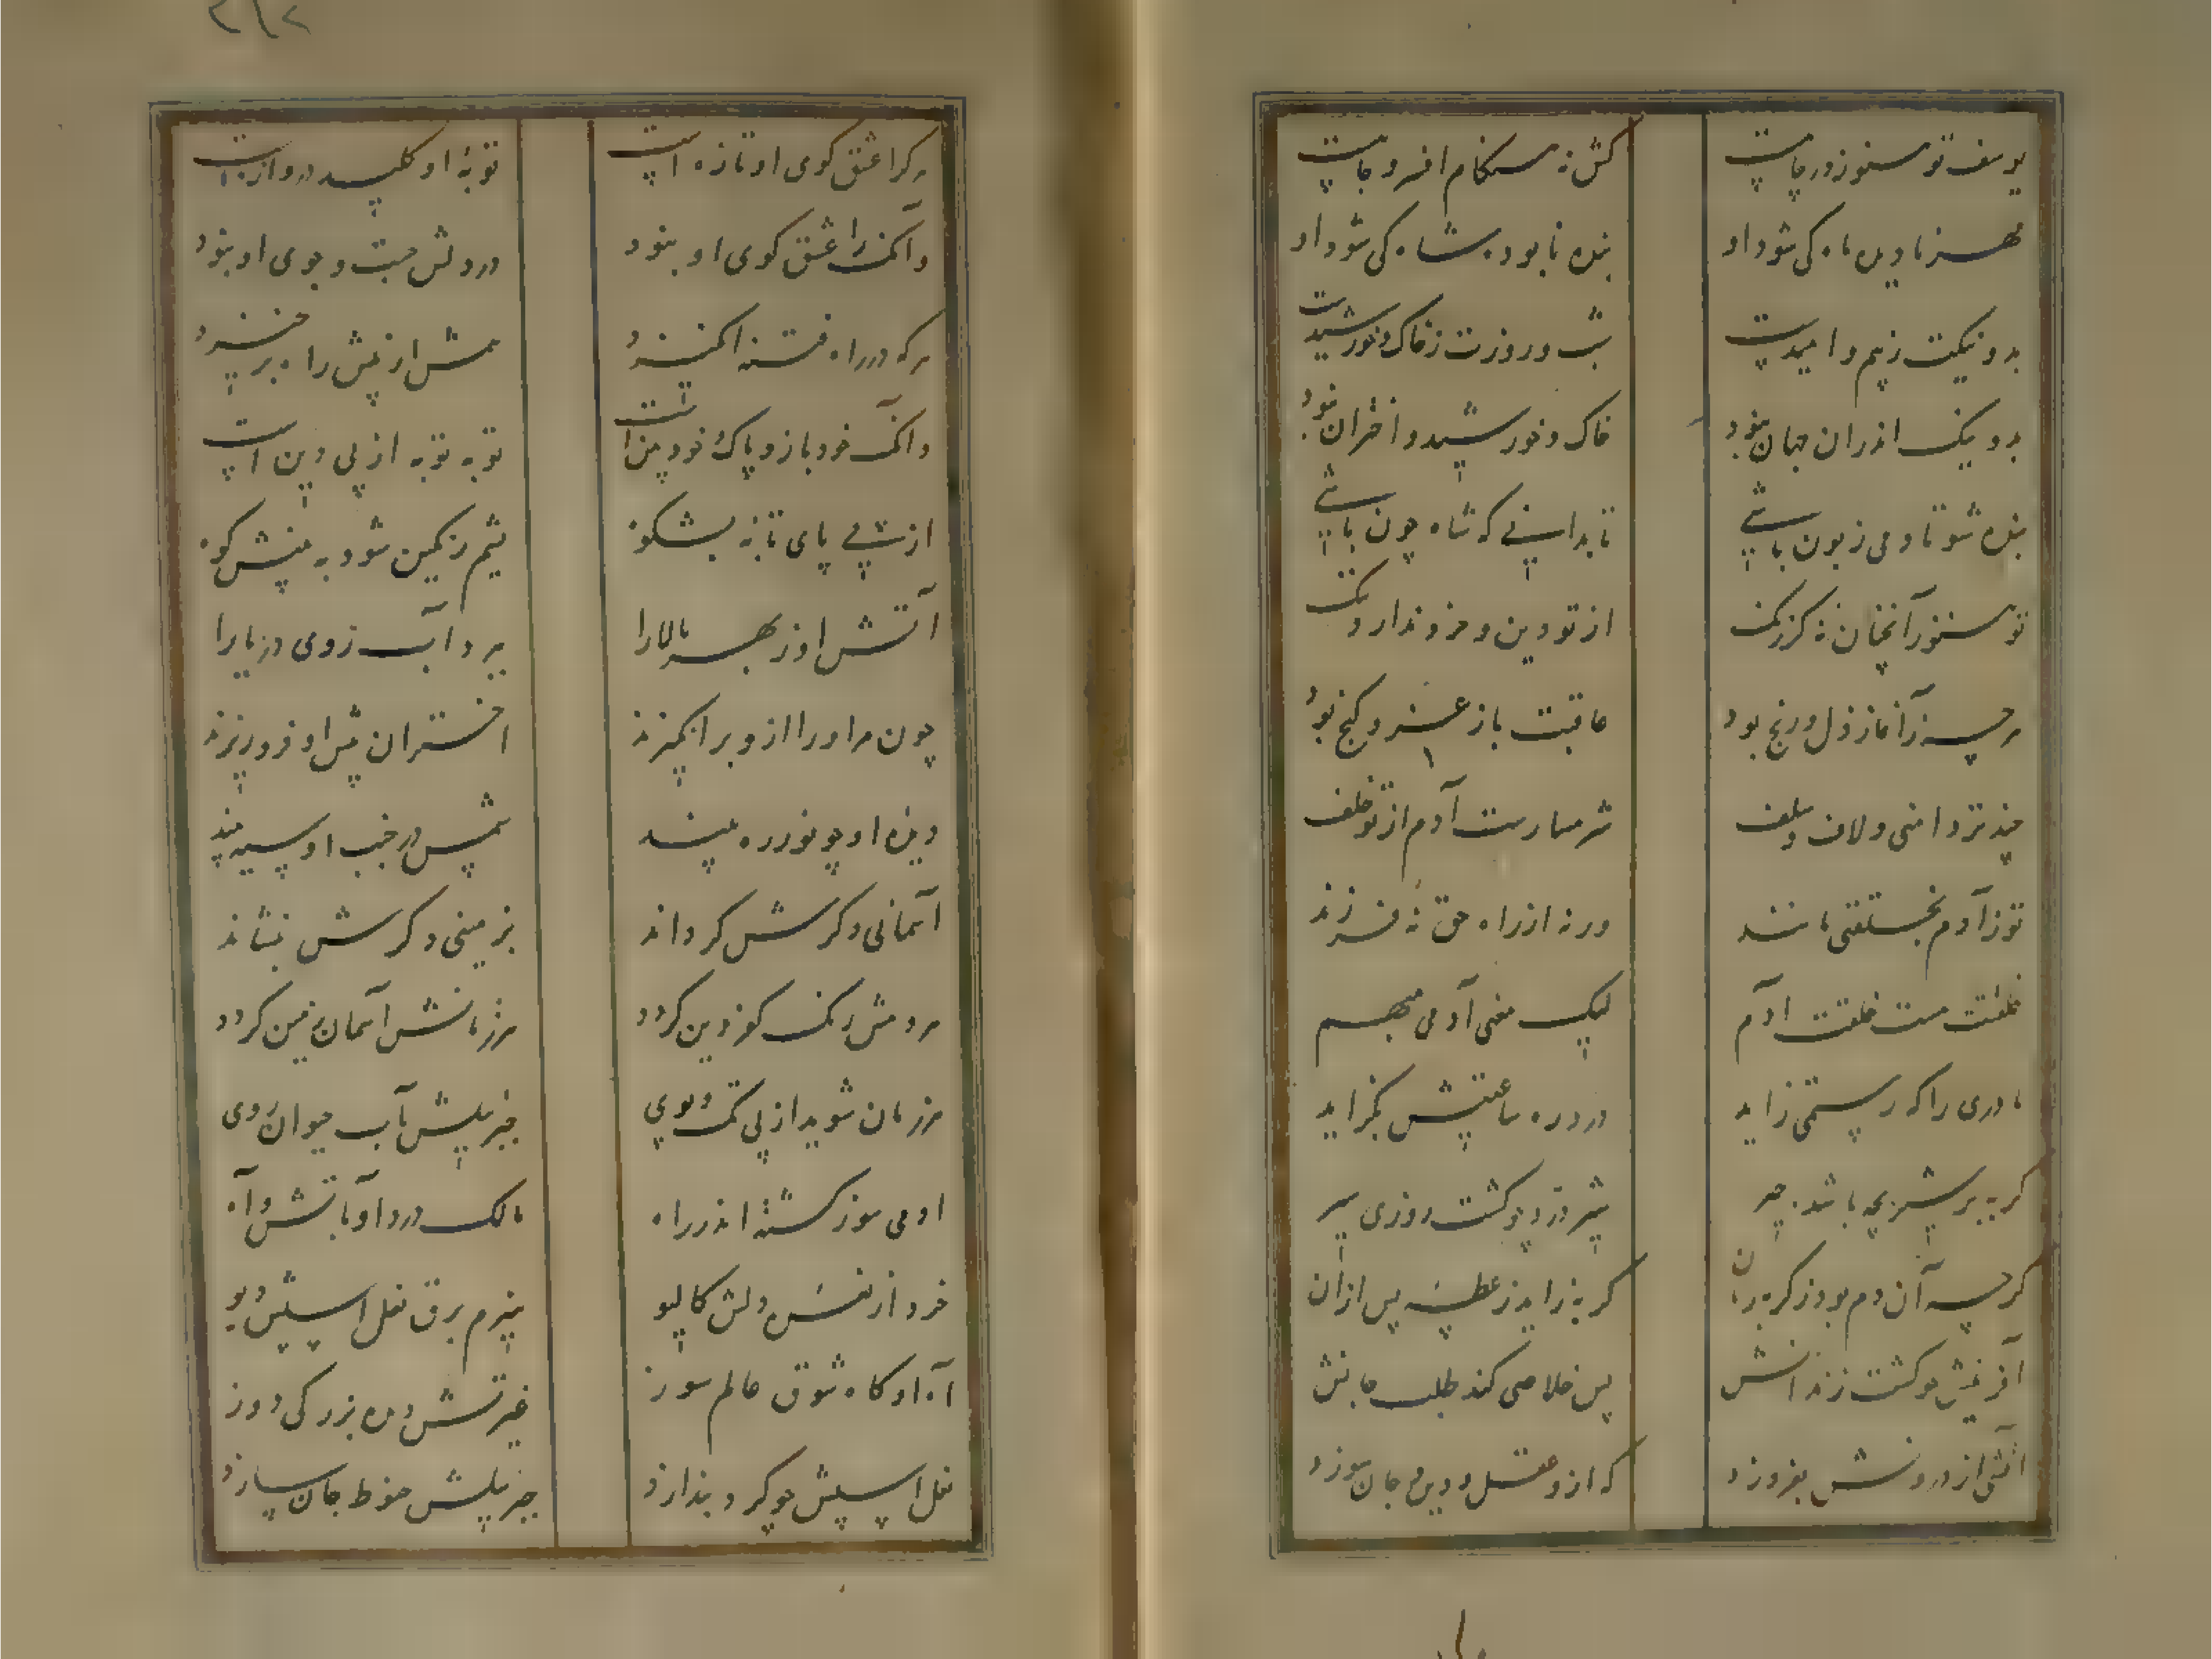 یوسف تو هنوز در چاهست
کش نه هنگام افسر و جاهست
مهر نادیده ماه کی شود او
بنده نابوده شاه کی شود او
بد و نیکت ز بیم و امیدست
شب و روزت ز خاک و خورشیدست
بد و نیک اندران جهان نبود
خاک و خورشید و اختران نبود
بنده شو تا دمی زبون باشی
تا بدانی که شاه چون باشی
تو هنوز آنچنان نه کز رنگ
از تو دین و خرد ندارد ننگ
هرچه ز آغاز ذل و رنج بود
عاقبت باز عز و گنج بود
چند تردامنی و لاف و صلف
شرمسارست آدم از تو خلف
تو ز آدم بخلقتی مانند
ور نه از راه حق نه فرزند
خلقتت هست خلقت آدم
لیک معنی آدمی مبهم
مادری را که رستمی زاید
درد ره ساعتیش بگزاید
گربه بر شیر بچه باشد چیر
شیر نر زو چو گشت روزی سیر
گرچه آن دم بود ز گربه زیان
گربه زاید ز عطسه پس از آن
آفرینش چو گشت زندانش
پس خلاصی کند طلب جانش
آتشی از درونش بفروزد
که ازو عقل و دین و جان سوزد
۳۱۲
هرکرا عشق کوی او تازه است
توبه او کلید دروازه است
وآنک را عشق کوی او نبود
در دلش جست و جوی او نبود
هرکه در راه فتنه انگیزد
همتش از پیش راه برخیزد
وآنک خود باز و پاک خود بین است
توبه توبه از پی دین است
از پی پای تابه بشکوه
پشم رنگین شود به پیشش کوه
آتش او ز بهر بالا را
ببرد آب روی دریا را
چون مر او را ازو برانگیزند
اختران پیش او فرو ریزند
دیده او چو نور ره بیند
شمس در جنب او سیه بیند
آسمانی و گرش گرداند
بزمینی دگرش بنشاند
هردمش رنگ کفر و دین گردد
هر زمانش آسمان زمین گردد
هر زمان شوید از پی تک و پوی
جبرئیلش بآب حیوان روی
او همی سوز گشته اندر راه
مالک درد او بآتش و آه
خرد از نفس و دلش کالیو
هیزم برق نعل اسپش دیو
آه او گاه شوق عالم سوز
غیرتش دیده بزرگی دوز
نعل اسپش چو گرد بندازد
جبرئیلش حنوط جان سازد